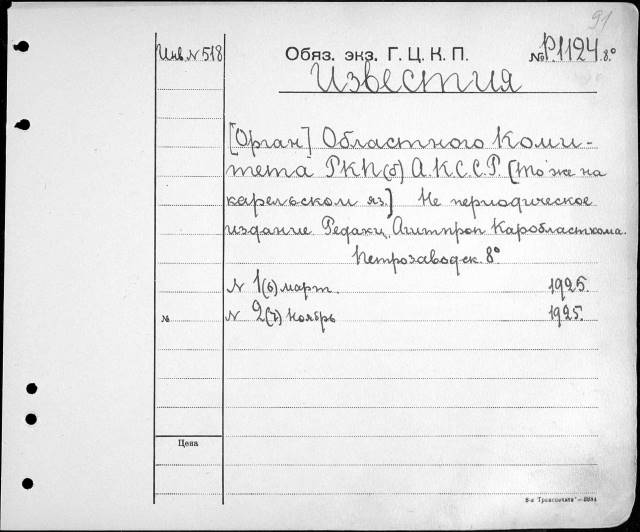 91
Инв. N 518
Обяз. экз. Г. Ц. К. П.
№ Р.1124 8°
Известия
[Орган] Областного Коми-
тета РКП(б) А.К.С.С.Р. [То же на
карельском яз.] Не периодическое
издание Редакц. Агитпроп Каробласткома.
Петрозаводск. 8°
N 1(6) март. 1925.
№
N 2(7) ноябрь 1925.
Цена